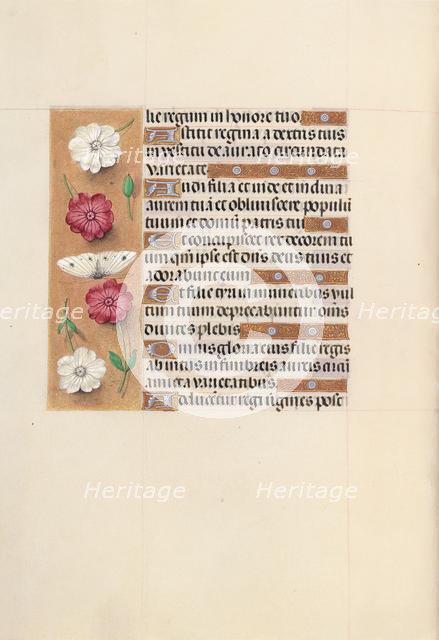 lie regum in honore tuo
Astitit regina a dextris tuis
in vestitu deaurato circundata
varietate
Audi filia et vide et inclina
aurem tuam et obliviscere populum
tuum et domum patris tui
Et concupiscet rex decorem tu
um qm ipse est dns deus tuus et
adorabunt eum
Et filie tyri in muneribus vul
tum tuum deprecabuntur omēs
divites plebis
Omnis gloria eius filie regis
ab intus in fimbreis aureis circū
amicta varietatibus
Adducentur regi virgines post
Heritage
Heritage
Heritage
Heritage
Heritage
Heritage